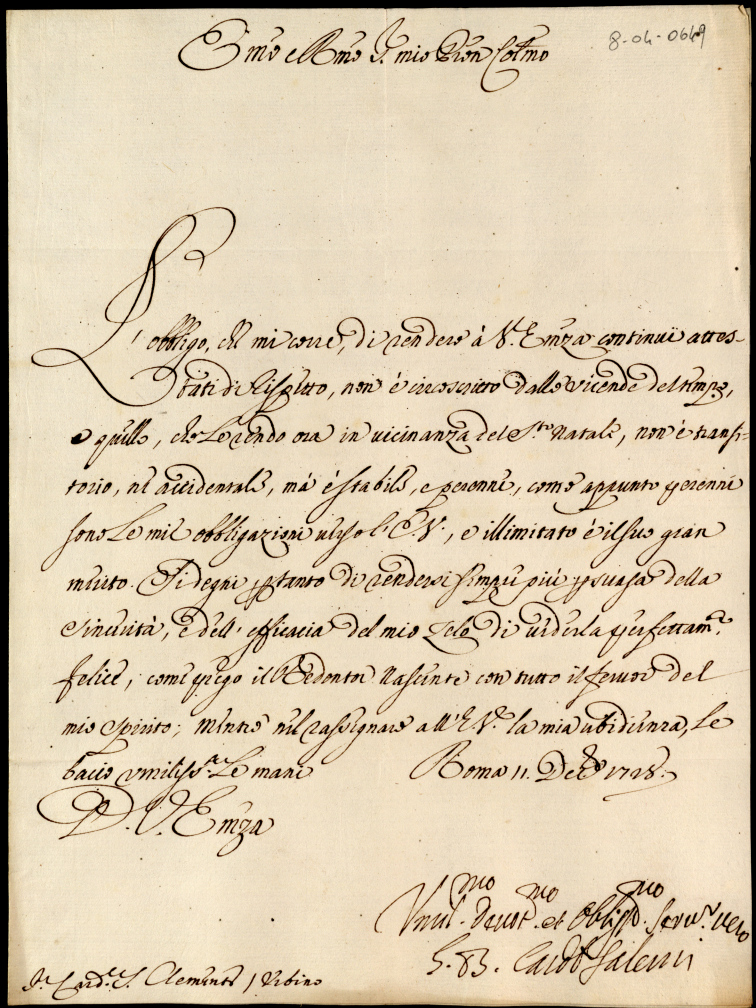 8-04-0649
Emo e Rmo Sr. mio Pron Colmo
L'obbligo, che mi corre, di rendere à V. Emza continui attes-
tati di Rispetto, non è circoscritto dalle vicende del tempo,
e quello, che Le rendo ora in vicinanza del Sto. Natale, non è transi-
torio, nè accidentale, mà è stabile, e perenne, come appunto perenni
sono Le mie obbligazioni verso l'E.V., e illimitato è il suo gran
merito. Si degni ptanto di rendersi sempre più psuasa della
sincerità, e dell'efficacia del mio zelo di vederla perfettamte.
felice, come prego il Redentor Nascente con tutto il fervore del
mio spirito; mentre nel rassegnare all'E.V. la mia ubidienza, Le
bacio umilisste. Le mani
Roma 11. Decbre 1728.
D. V. Emza
Umilmo. Devotmo. et Obligmo. Servr. vero
G. B. Cardl. Salerni
Sr. Card.e S. Clemente / Urbino